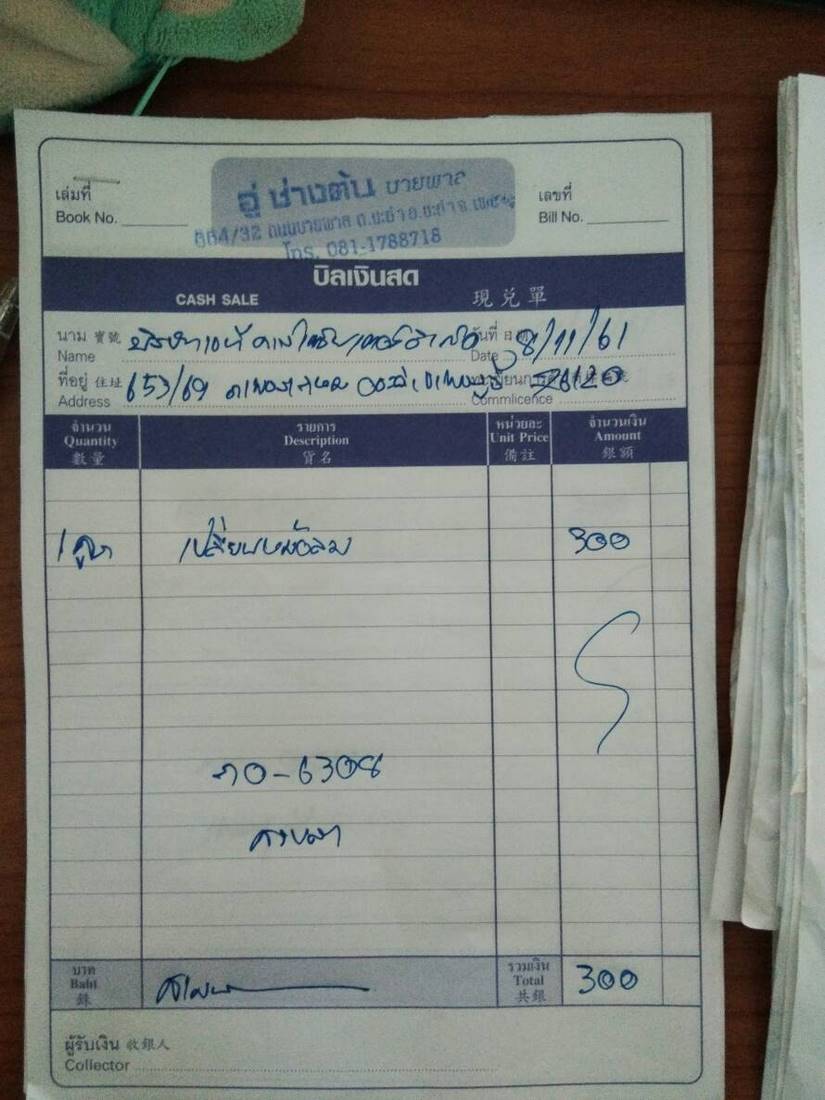 เล่มที่
Book No.
อู่ ช่างต้น บายพาส
664/32 ถนนบายพาส ต.ชะอำ อ.ชะอำ จ.เพชรบุรี
โทร. 081-1788718
เลขที่
Bill No.
บิลเงินสด
CASH SALE 現兌單
นาม 寶號
Name
วันที่ 日期 8/11/61
Date
ที่อยู่ 住址 653/69
Address
76120
Commlicence
จำนวน รายการ หน่วยละ จำนวนเงิน
Quantity Description Unit Price Amount
數量 貨名 備註 銀額
1 ลูก เปลี่ยนหม้อลม 300
-6308
บาท รวมเงิน
Baht Total 300
銖 共銀
ผู้รับเงิน 收銀人
Collector